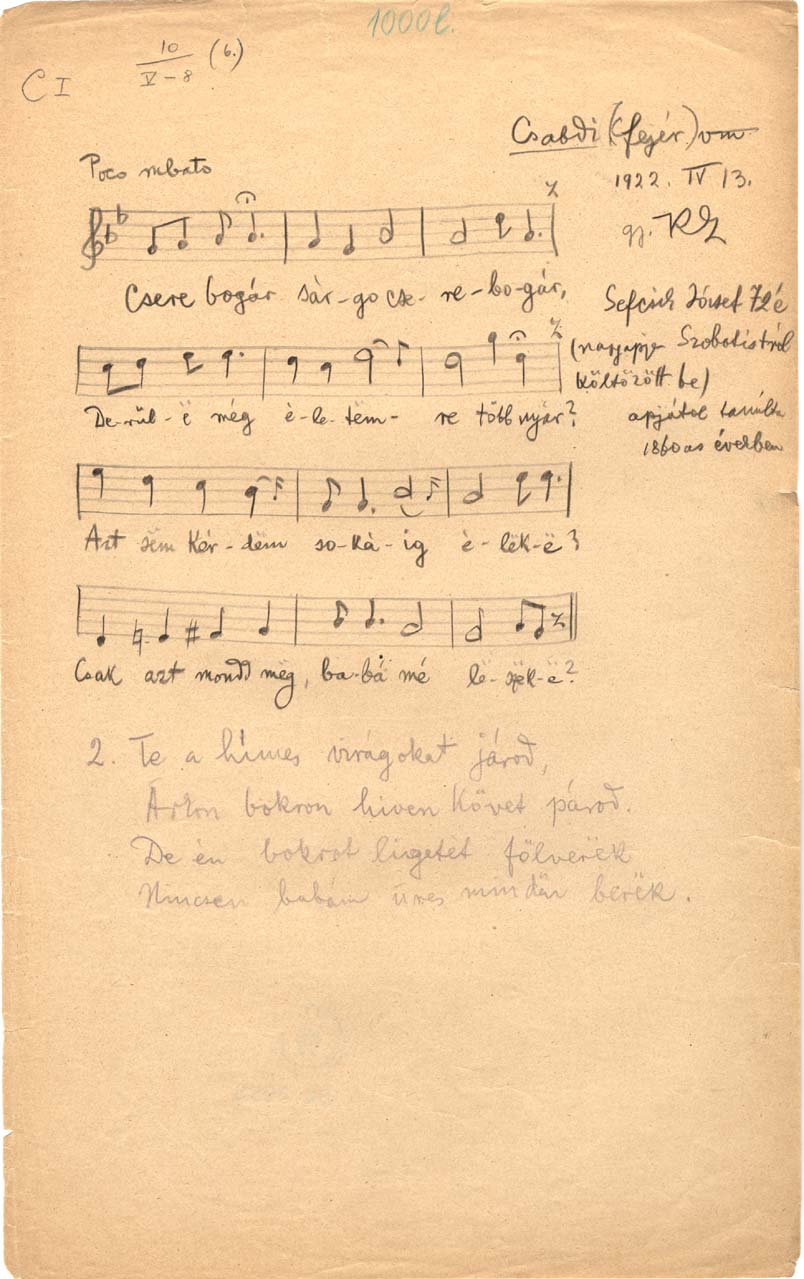 1000l.
C I
10
V-8 (6.)
Csabdi (Fejér.) vm
1922. IV 13.
gy. KZ
Poco rubato
Csere bogár sàr-go cse-re-bo-gár,
De-rül-ë még è-le-tëm-re több nyár?
Azt sëm kér-dëm so-ká-ig è-lëk-ë?
Csak azt mondd mëg, ba-bá mé lë-szëk-ë?
Sefcsik József 72é
(nagyapja Szobotistról
költözött be)
apjától tanulta
1860as években
2. Te a hímes virágokat járod,
Ágron bokron hiven követ párod.
De én bokrot ligetët fölverëk
Nincsen babám üres mindën berëk.